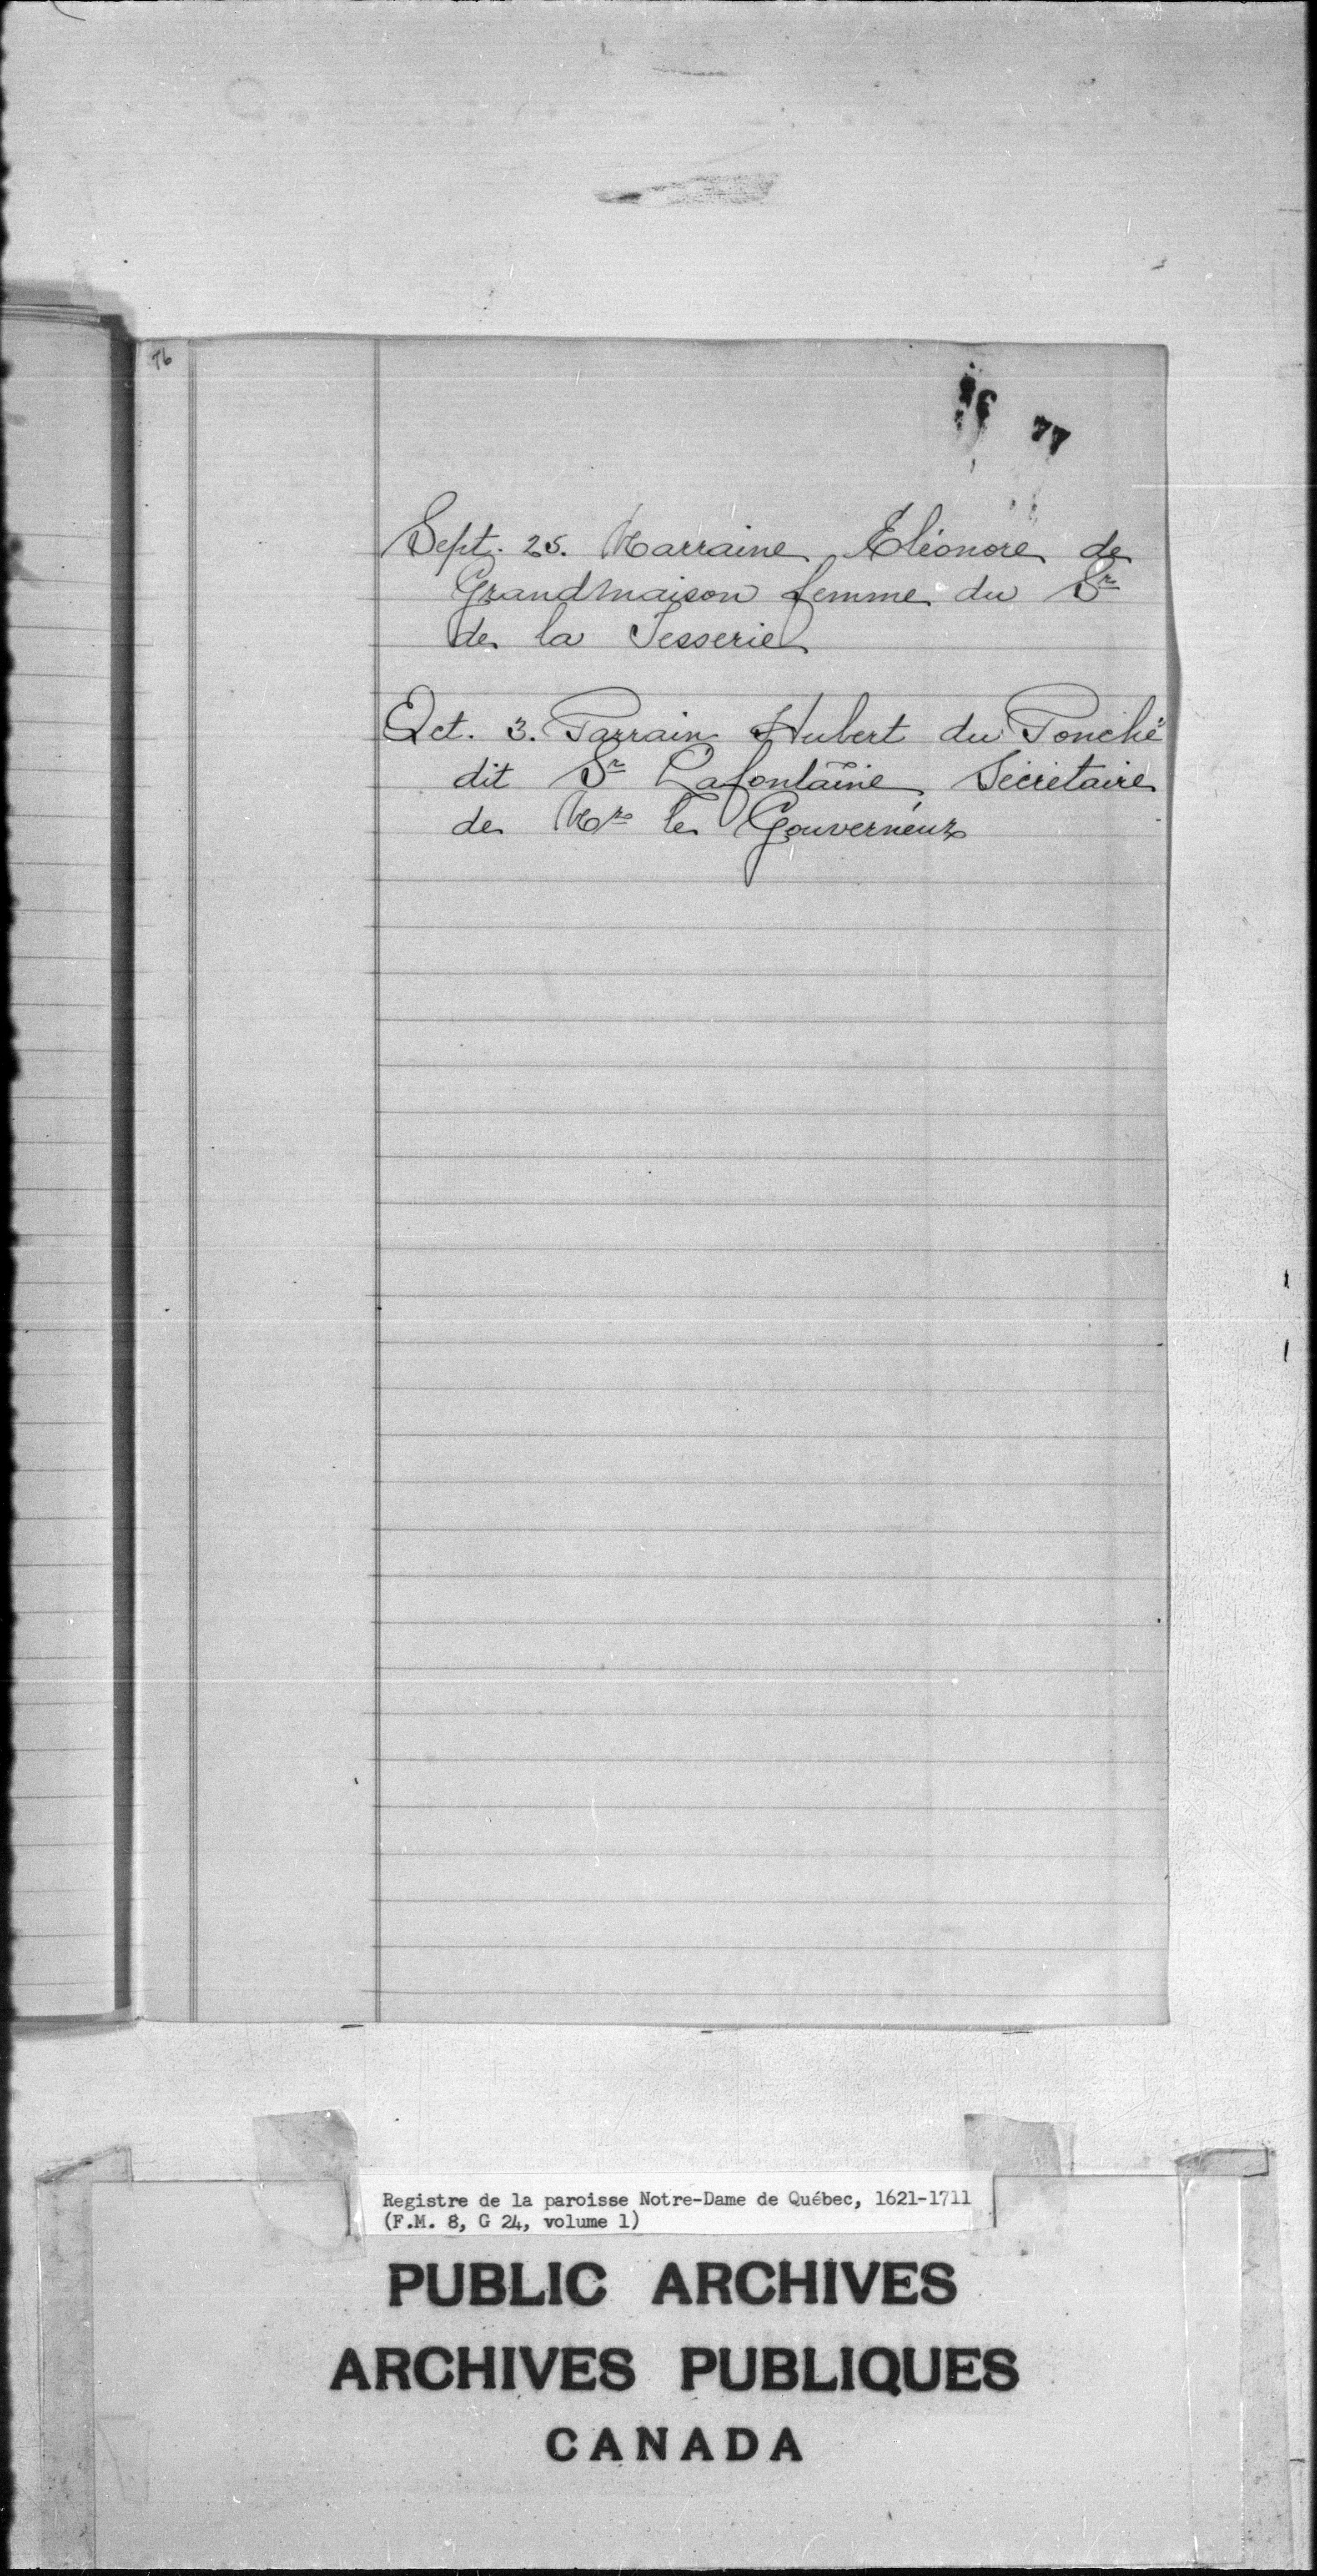 76
77
Sept. 25. Marraine Eléonore de
Grandmaison femme du Sr
de la Tesserie
Oct. 3. Parrain Hubert du Ponché
dit Sr Lafontaine, Sécrétaire
de Mr le Gouverneur
Registre de la paroisse Notre-Dame de Québec, 1621-1711
(F.M. 8, G 24, volume 1)
PUBLIC ARCHIVES
ARCHIVES PUBLIQUES
CANADA